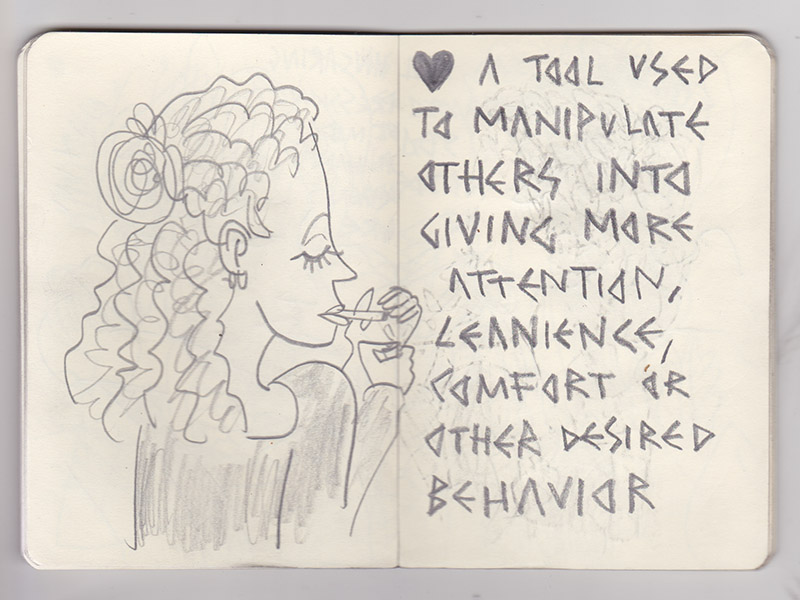 ♥ A TOOL USED
TO MANIPULATE
OTHERS INTO
GIVING MORE
ATTENTION,
LEANIENCE,
COMFORT OR
OTHER DESIRED
BEHAVIOR